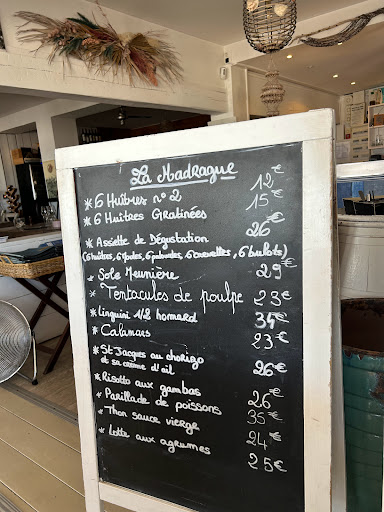 La Madrague
* 6 Huîtres n°2 12€
* 6 Huitres Gratinées 15€
* Assiette de Dégustation 26€
(6 huîtres, 6 moules, 6 palourdes, 6 crevettes, 6 bulots)
* Sole Meunière 29€
* Tentacules de poulpe 23€
* Linguini 1/2 homard 34€
* Calamars 23€
* St Jacques au chorizo
et sa crème d'ail 26€
* Risotto aux gambas 26€
* Parillade de poissons 35€
* Thon sauce vierge 24€
* Lotte aux agrumes 25€